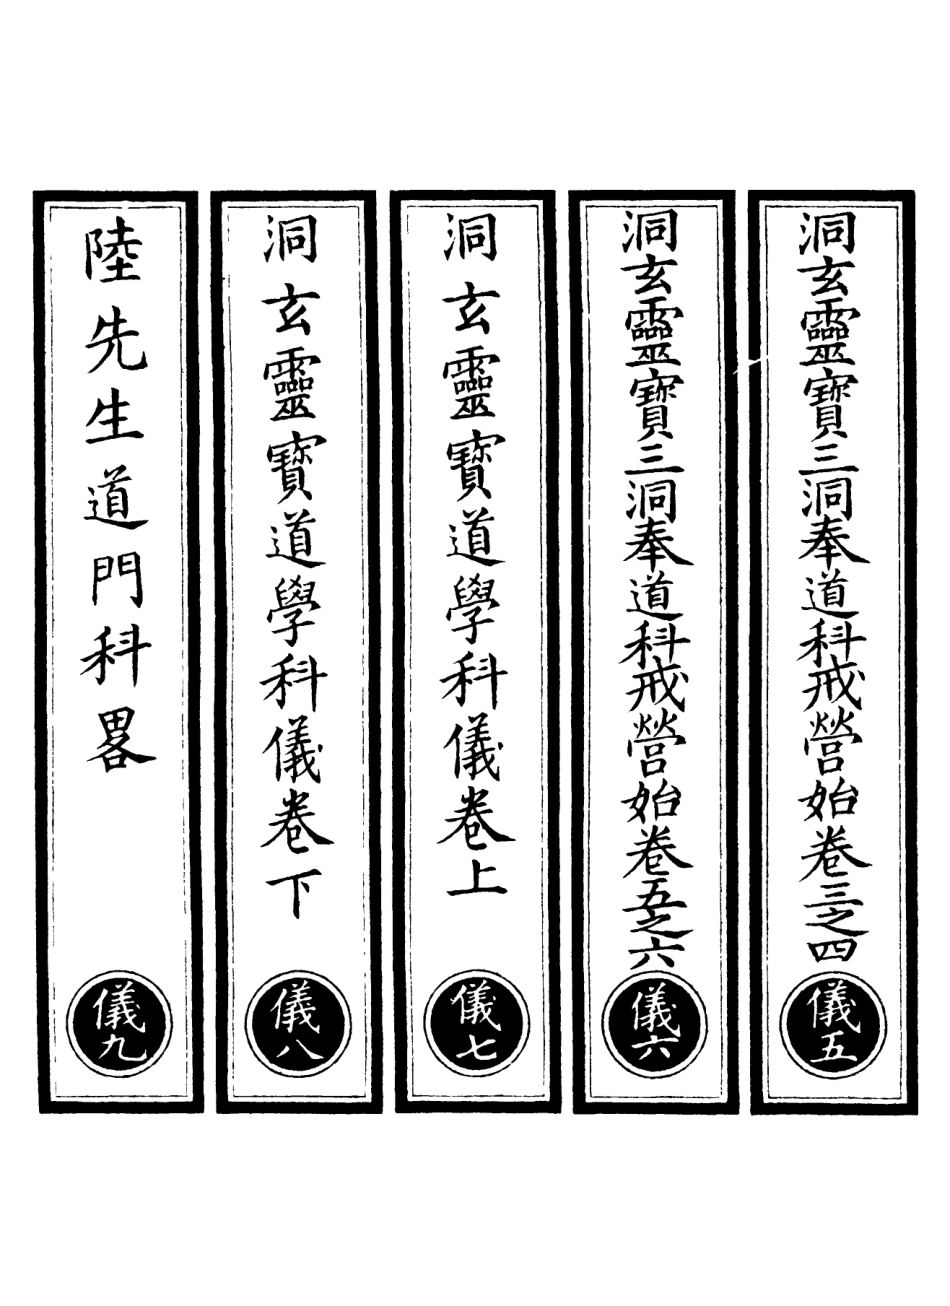 洞玄靈寶三洞奉道科戒營始卷三之四
儀五
洞玄靈寶三洞奉道科戒營始卷五之六
儀六
洞玄靈寶道學科儀卷上
儀七
洞玄靈寶道學科儀卷下
儀八
陸先生道門科畧
儀九